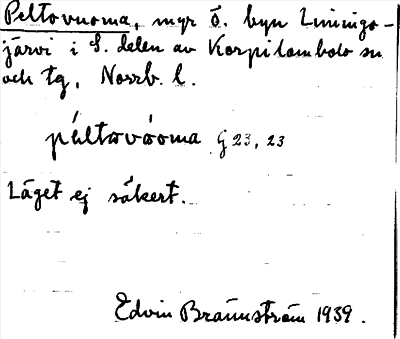 Peltovuoma, myr ö. byn Liningo-
järvi i S. delen av Korpilombolo sn
och tg, Norrb. l.
péltovùoma G 23, 23
Läget ej säkert.
Edvin Brännström 1939.